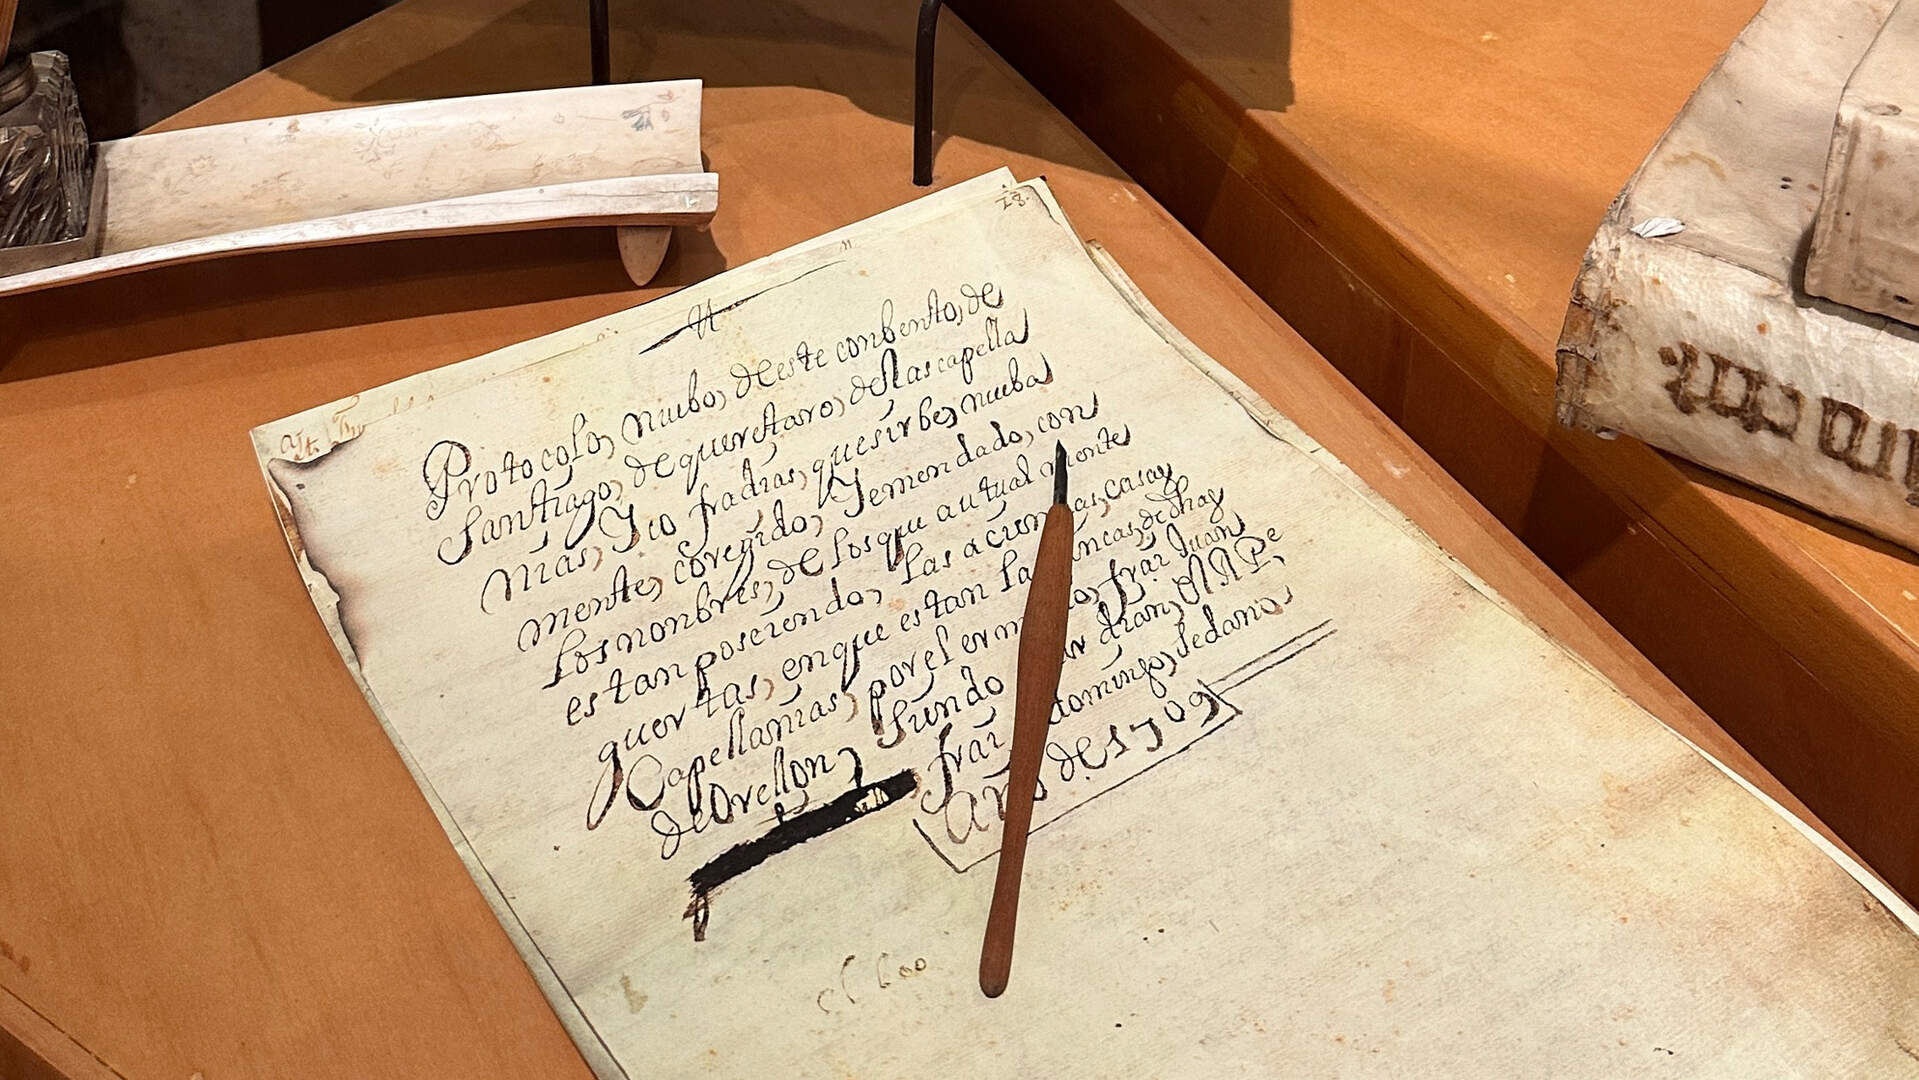 Protocolo, nuebo, deeste conbento, de
Santiago, de queretaro, delas capella
nias, Y co fradias, que sirbe, nueba
mente, corejido, Y emendado, con
los nonbres, de losque autual mente
estan poseiendo, las acien as, casas
guertas, enque estan la incas, de dhas
Capellanias, por el erm o, frai Juan
de Orellon, siendo ar dian, N R Pe
frai domingo, sedano
Año de 1709